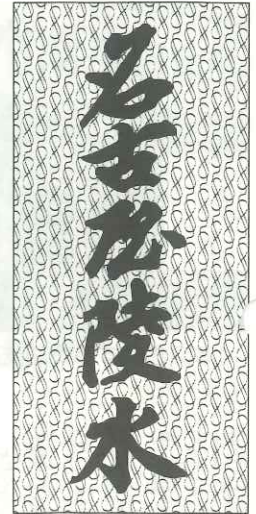 名古屋陵水